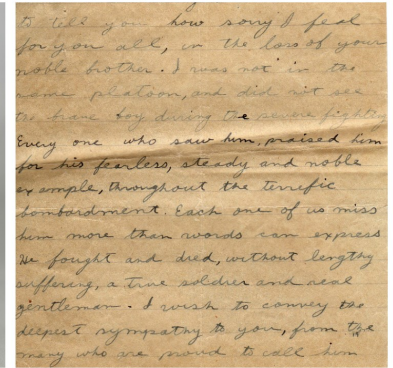 to tell you how sorry I feel
for you all, in the loss of your
noble brother. I was not in the
same platoon, and did not see
the brave boy during the severe fighting
Every one who saw him, praised him
for his fearless, steady and noble
example, throughout the terrific
bombardment. Each one of us miss
him more than words can express
He fought and died, without lengthy
suffering, a true soldier and real
gentleman. I wish to convey the
deepest sympathy to you, from the
many who are proud to call him